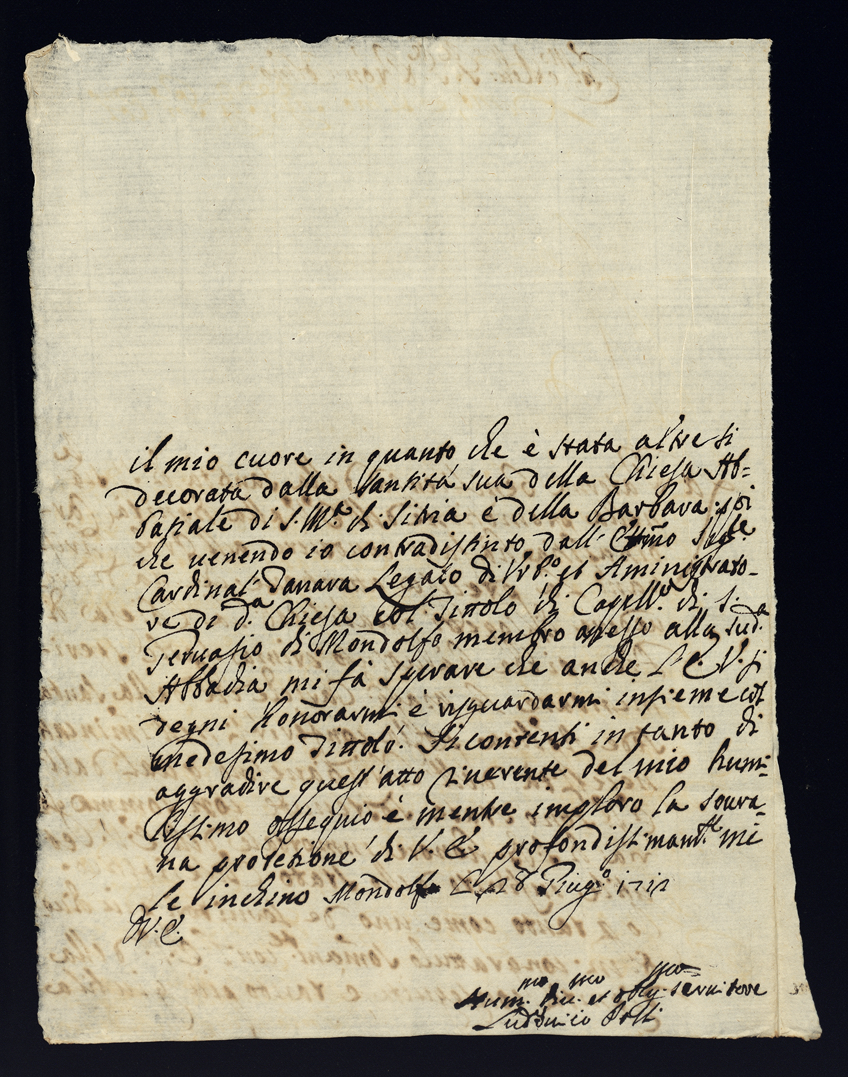 il mio cuore in quanto che è stata altresi
decorata dalla Santità sua della Chiesa Ab=
baziale di S. Mª. di Sitria è della Barbara poi
che venendo io contradistinto dall'
Cardinal Tanara Legato di Urb.º et Aministrato-
re di d.ª Chiesa col Tittolo di Capellº. di S.
Gervasio di Mondolfo membro anesso alla sud.ª
Abbadia mi fà sperare che anche l'E. V. si
degni honorarmi è risguardarmi insieme col
medesimo Tittolo. Si contenti in tanto di
aggradire quest'atto riverente del mio humi=
lissimo ossequio è mentre imploro la sovra=
na protezione di V. E. profondissi.mamtte mi
le inchino Mondolfo 28 Giugº 1712
D. V. E.
Hum.mo Div.mo et oblig.mo servitore
Ludovico Polli